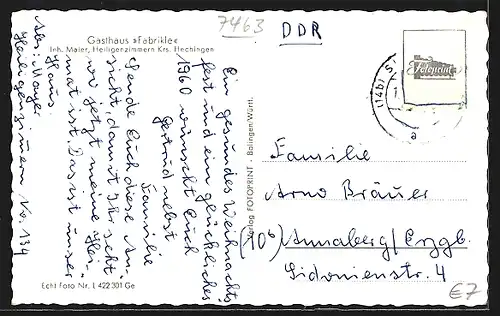 7463
DDR
Gasthaus »Fabrikle«
Inh. Maier, Heiligenzimmern Krs. Hechingen
Ein gesundes Weihnachts-
fest und ein glückliches
1960 wünscht Euch
Gertrud nebst
Familie
Sende Euch diese An-
sicht, damit Ihr seht
wo jetzt meine Hei-
mat ist. Das ist unser
Haus.
Abs: Mayer
Heiligenzimmern No. 134
Echt Foto Nr. L 422 301 Ge
Verlag FOTOPRINT · Balingen/Württ.
Fotoprint
(14b)
Familie
Arno Bräuer
(10b) Annaberg/Erzgb.
Sidonienstr. 4
€7